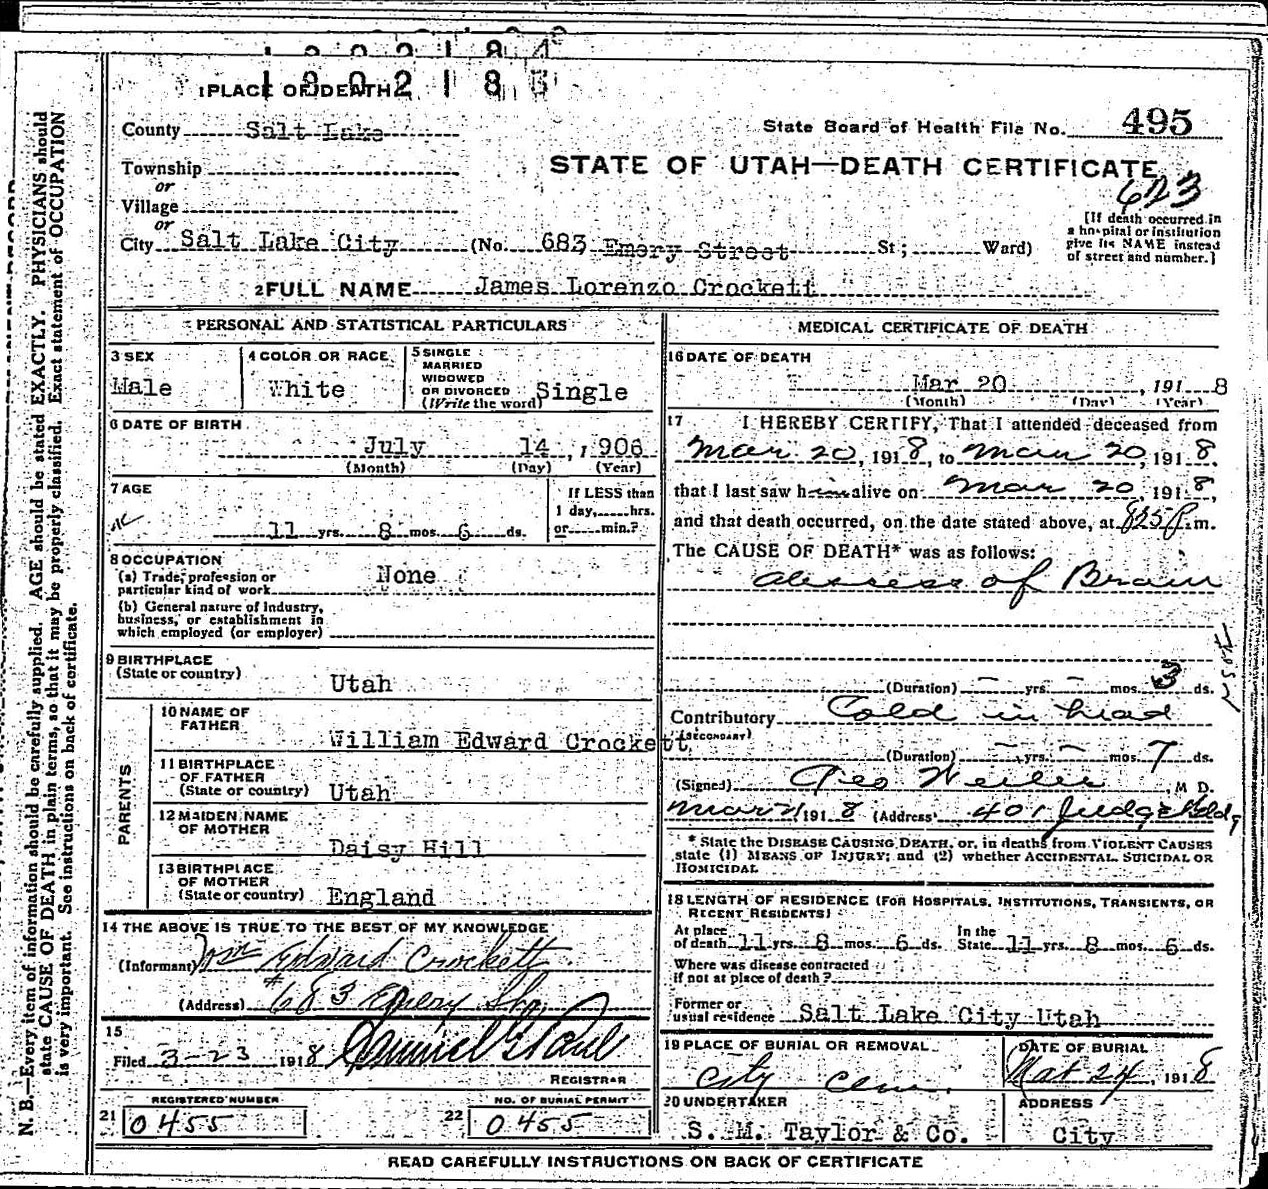 1902184
1902185
1 PLACE OF DEATH
County Salt Lake
State Board of Health File No. 495
Township
or
Village
or
STATE OF UTAH—DEATH CERTIFICATE
623
[If death occurred in
a hospital or institution
give its NAME instead
of street and number.]
City Salt Lake City (No. 683 Emery Street St; Ward)
2 FULL NAME James Lorenzo Crockett
PERSONAL AND STATISTICAL PARTICULARS
3 SEX
Male
4 COLOR OR RACE
White
5 SINGLE
MARRIED
WIDOWED
OR DIVORCED
(Write the word) Single
6 DATE OF BIRTH
July 14, 1906
(Month) (Day) (Year)
7 AGE
11 yrs. 8 mos. 6 ds.
If LESS than
1 day, hrs.
or min.?
8 OCCUPATION
(a) Trade, profession or
particular kind of work None
(b) General nature of Industry,
business, or establishment in
which employed (or employer)
9 BIRTHPLACE
(State or country) Utah
PARENTS
10 NAME OF
FATHER
William Edward Crockett
11 BIRTHPLACE
OF FATHER
(State or country) Utah
12 MAIDEN NAME
OF MOTHER
Daisy Hill
13 BIRTHPLACE
OF MOTHER
(State or country) England
14 THE ABOVE IS TRUE TO THE BEST OF MY KNOWLEDGE
(Informant) Wm Edward Crockett
(Address) #683 Emery
15
Filed 3-23 1918 Samuel G Paul
REGISTRAR
REGISTERED NUMBER
21 0455
NO. OF BURIAL PERMIT
22 0455
MEDICAL CERTIFICATE OF DEATH
16 DATE OF DEATH
Mar 20, 1918
(Month) (Day) (Year)
17 I HEREBY CERTIFY, That I attended deceased from
Mar 20, 1918, to Mar 20, 1918,
that I last saw him alive on Mar 20, 1918,
and that death occurred, on the date stated above, at 825 P.m.
The CAUSE OF DEATH* was as follows:
Abscess of Brain
(Duration) – yrs. – mos. 3 ds.
Contributory Cold in head
(SECONDARY)
(Duration) – yrs. – mos. 7 ds.
(Signed) Geo , M D.
Mar 21 1918 (Address) 401 Judge Bldg
* State the DISEASE CAUSING DEATH, or, in deaths from VIOLENT CAUSES
state (1) MEANS OF INJURY; and (2) whether ACCIDENTAL, SUICIDAL OR
HOMICIDAL
18 LENGTH OF RESIDENCE (FOR HOSPITALS, INSTITUTIONS, TRANSIENTS, OR
RECENT RESIDENTS)
At place
of death 11 yrs. 8 mos. 6 ds.
In the
State 11 yrs. 8 mos. 6 ds.
Where was disease contracted
if not at place of death?
Former or
usual residence Salt Lake City Utah
19 PLACE OF BURIAL OR REMOVAL
City Cem.
DATE OF BURIAL
Mar 24, 1918
20 UNDERTAKER
S. M. Taylor & Co.
ADDRESS
City
READ CAREFULLY INSTRUCTIONS ON BACK OF CERTIFICATE
N. B.—Every item of information should be carefully supplied. AGE should be stated EXACTLY. PHYSICIANS should
state CAUSE OF DEATH in plain terms, so that it may be properly classified. Exact statement of OCCUPATION
is very important. See instructions on back of certificate.